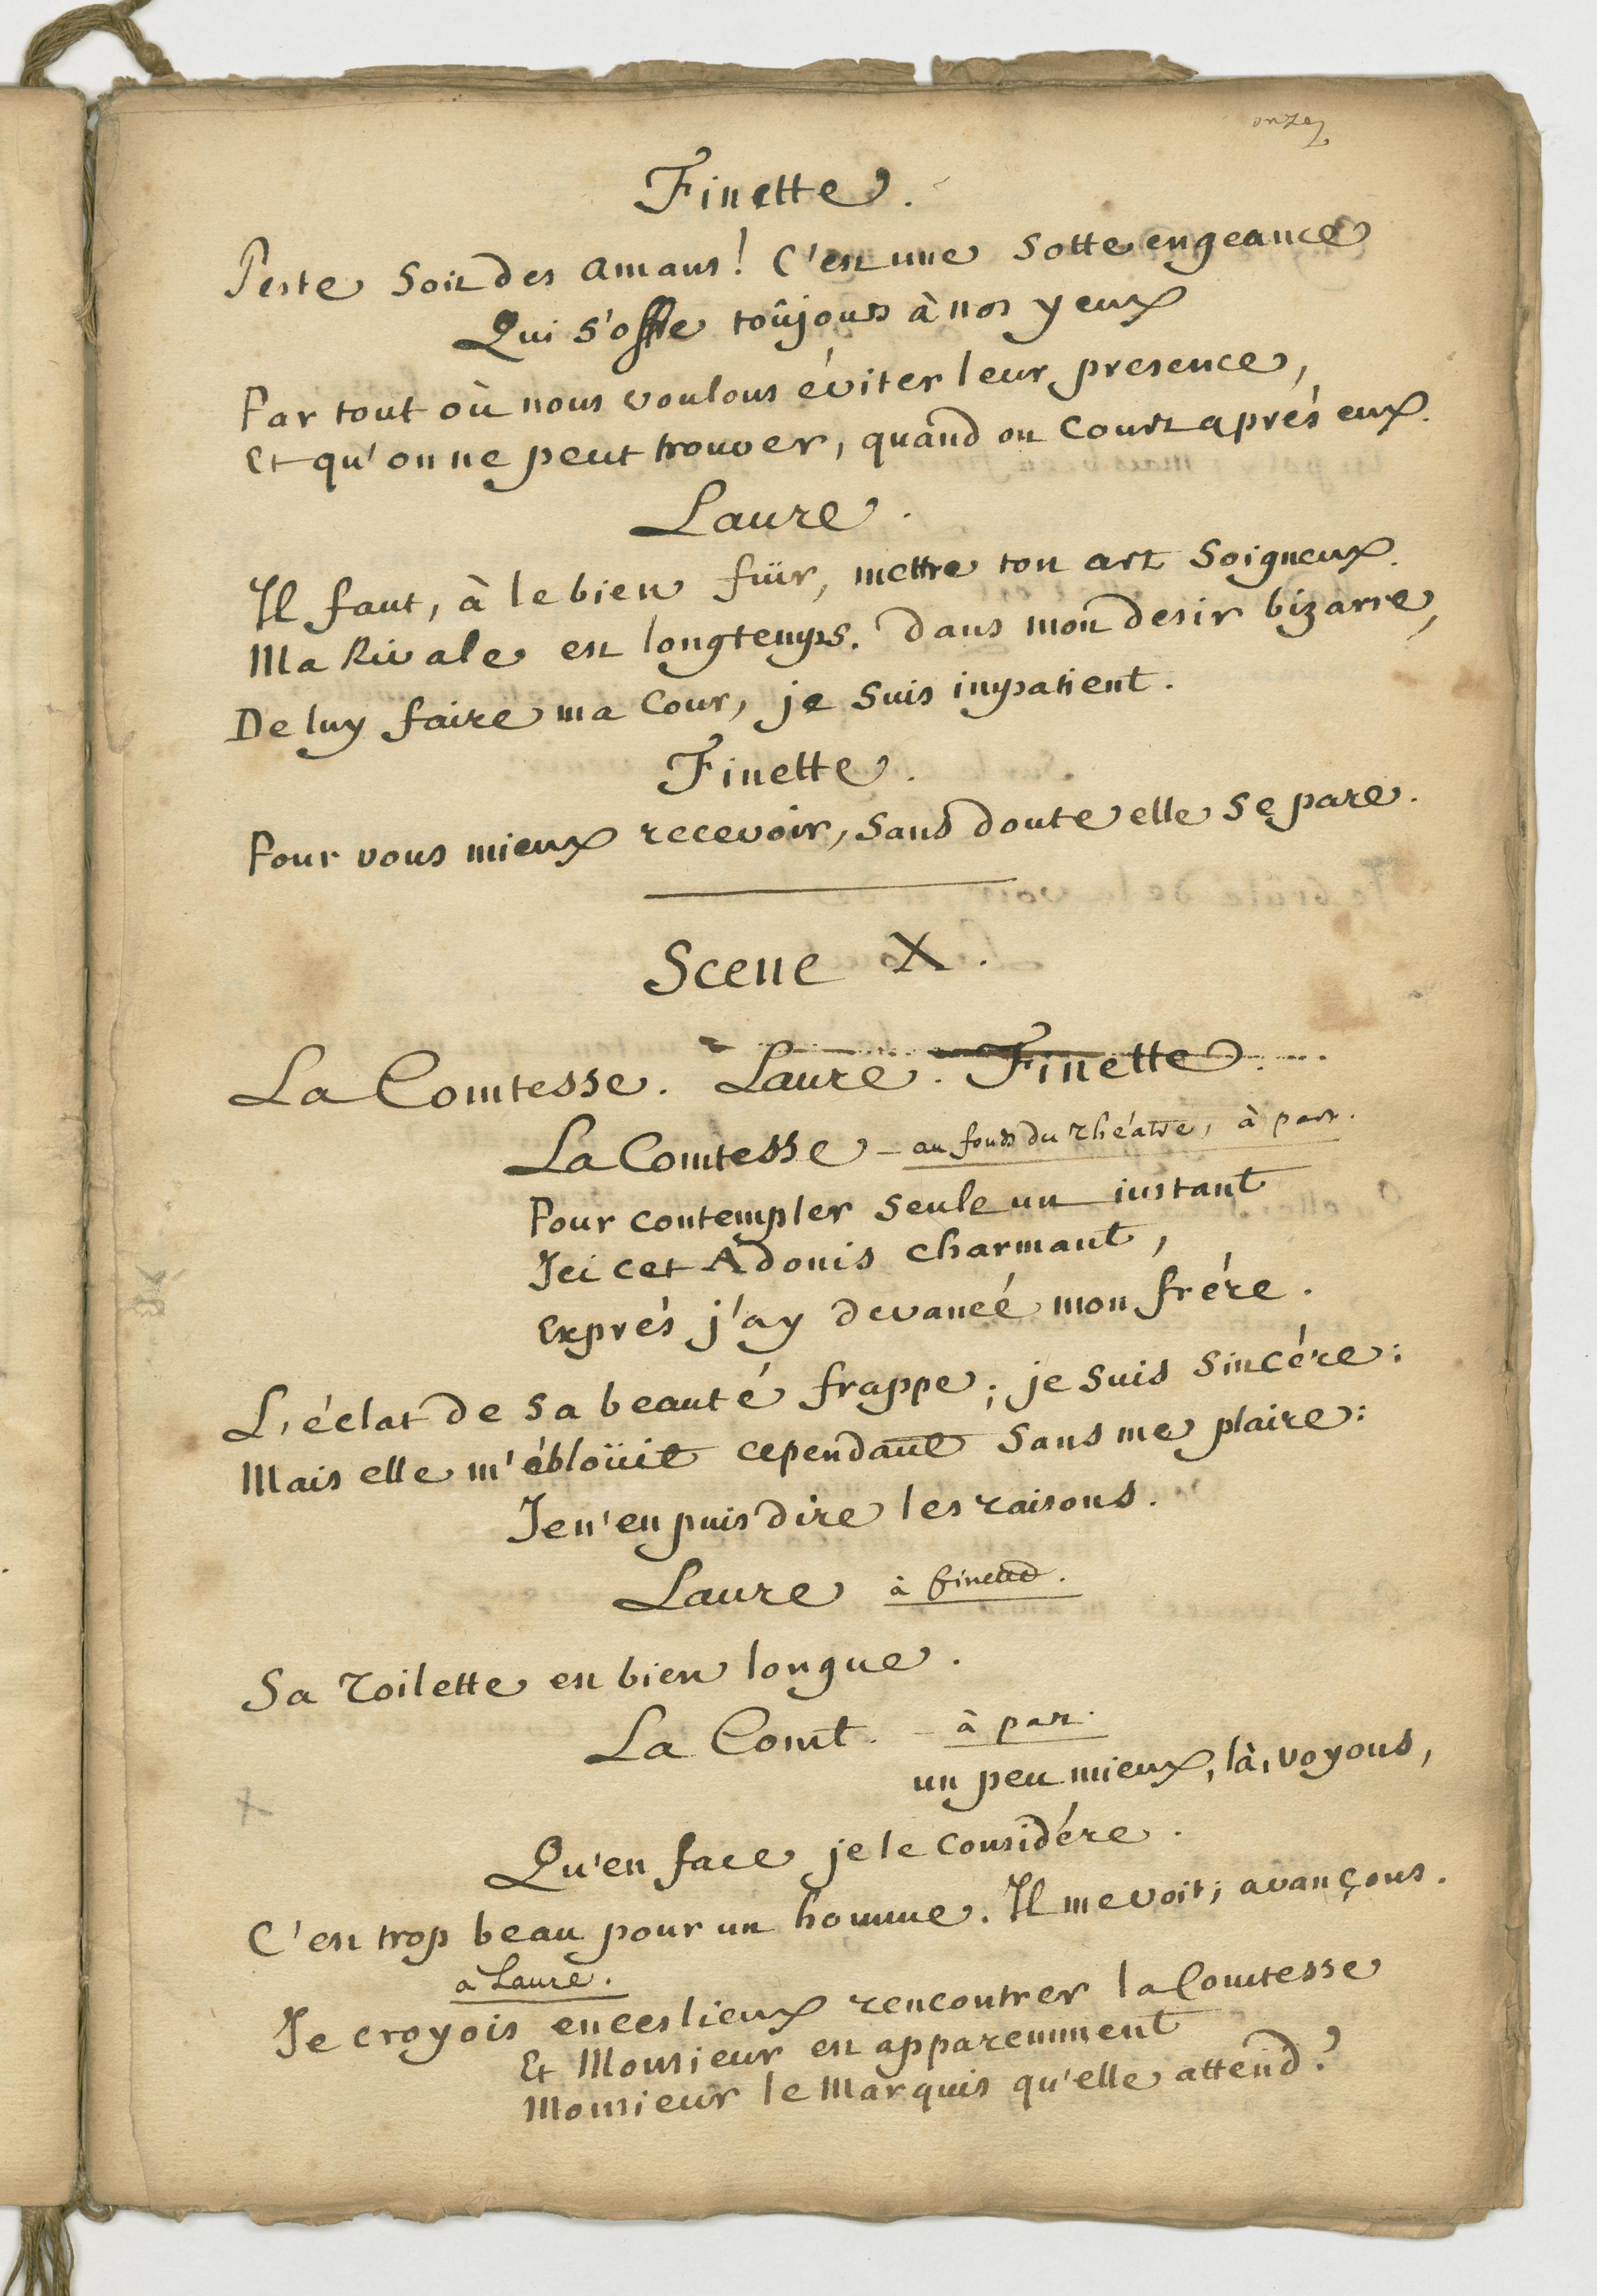 onze
Finette.
Peste soit des amans! C'est une sotte engeance
Qui s'offre toûjours à nos yeux
Par tout où nous voulons éviter leur presence,
Et qu'on ne peut trouver, quand on court aprés eux.
Laure.
Il faut, à le bien fuïr, mettre ton art soigneux.
Ma Rivale est longtemps. Dans mon desir bizarre,
De luy faire ma Cour, je suis impatient.
Finette.
Pour vous mieux recevoir, sans doute elle se pare.
Scene X.
La Comtesse. Laure. Finette.
La Comtesse - au fonds du théatre, à part.
Pour contempler seule un instant
Ici cet Adonis charmant,
Exprés j'ay devancé mon frére.
L'éclat de sa beauté frappe; je suis sincére:
Mais elle m'éblouït cependant sans me plaire:
Je n'en puis dire les raisons.
Laure à finette.
Sa toilette est bien longue.
La Comt. - à part.
un peu mieux, là, voyons,
Qu'en face je le considére.
C'est trop beau pour un homme. Il me voit; avançons.
a Laure.
Je croyois en ces lieux rencontrer la Comtesse
Et Monsieur est apparemment
Monsieur le Marquis qu'elle attend?